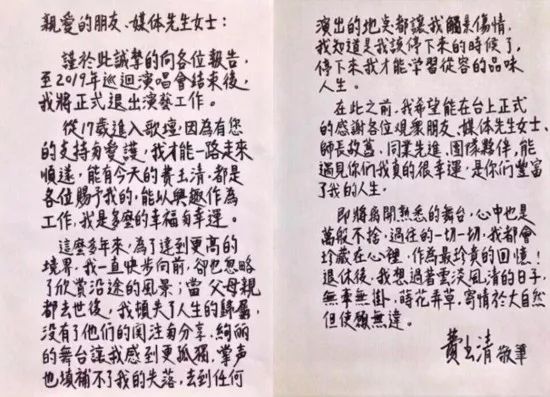 親愛的朋友、媒体先生女士：
謹於此誠摯的向各位報告，
至2019年巡迴演唱會結束後，
我將正式退出演藝工作。
從17歲進入歌壇，因為有您
的支持與愛護，我才能一路走來
順遂，能有今天的費玉清，都是
各位賜予我的，能以興趣作為
工作，我是多麼的幸福與幸運。
這麼多年來，為了達到更高的
境界，我一直快步向前，卻也忽略
了欣賞沿途的風景；當父母親
都去世後，我頓失了人生的歸屬，
没有了他們的関注與分享，絢麗
的舞台讓我感到更孤獨，掌声
也填補不了我的失落，去到任何
演出的地点都讓我觸景傷情，
我知道是我該停下來的時候了，
停下來我才能学習從容的品味
人生。
在此之前，我希望能在台上正式
的感谢各位观衆朋友、媒体先生女士、
師長故舊、同業先進、團隊夥伴，能
遇見你們我真的很幸運，是你們豐富
了我的人生。
即將離開熟悉的舞台，心中也是
萬般不捨，過往的一切一切，我都會
珍藏在心裡，作為最珍貴的回憶！
退休後，我想過著雲淡風清的日子，
無牽無掛，蒔花弄草，寄情於大自然
但使願無違。
費玉清 敬筆